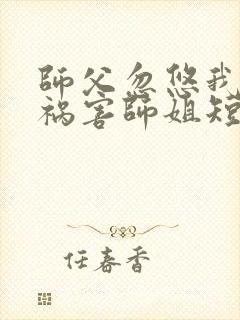 師父忽悠我
禍害師姐短
任春香